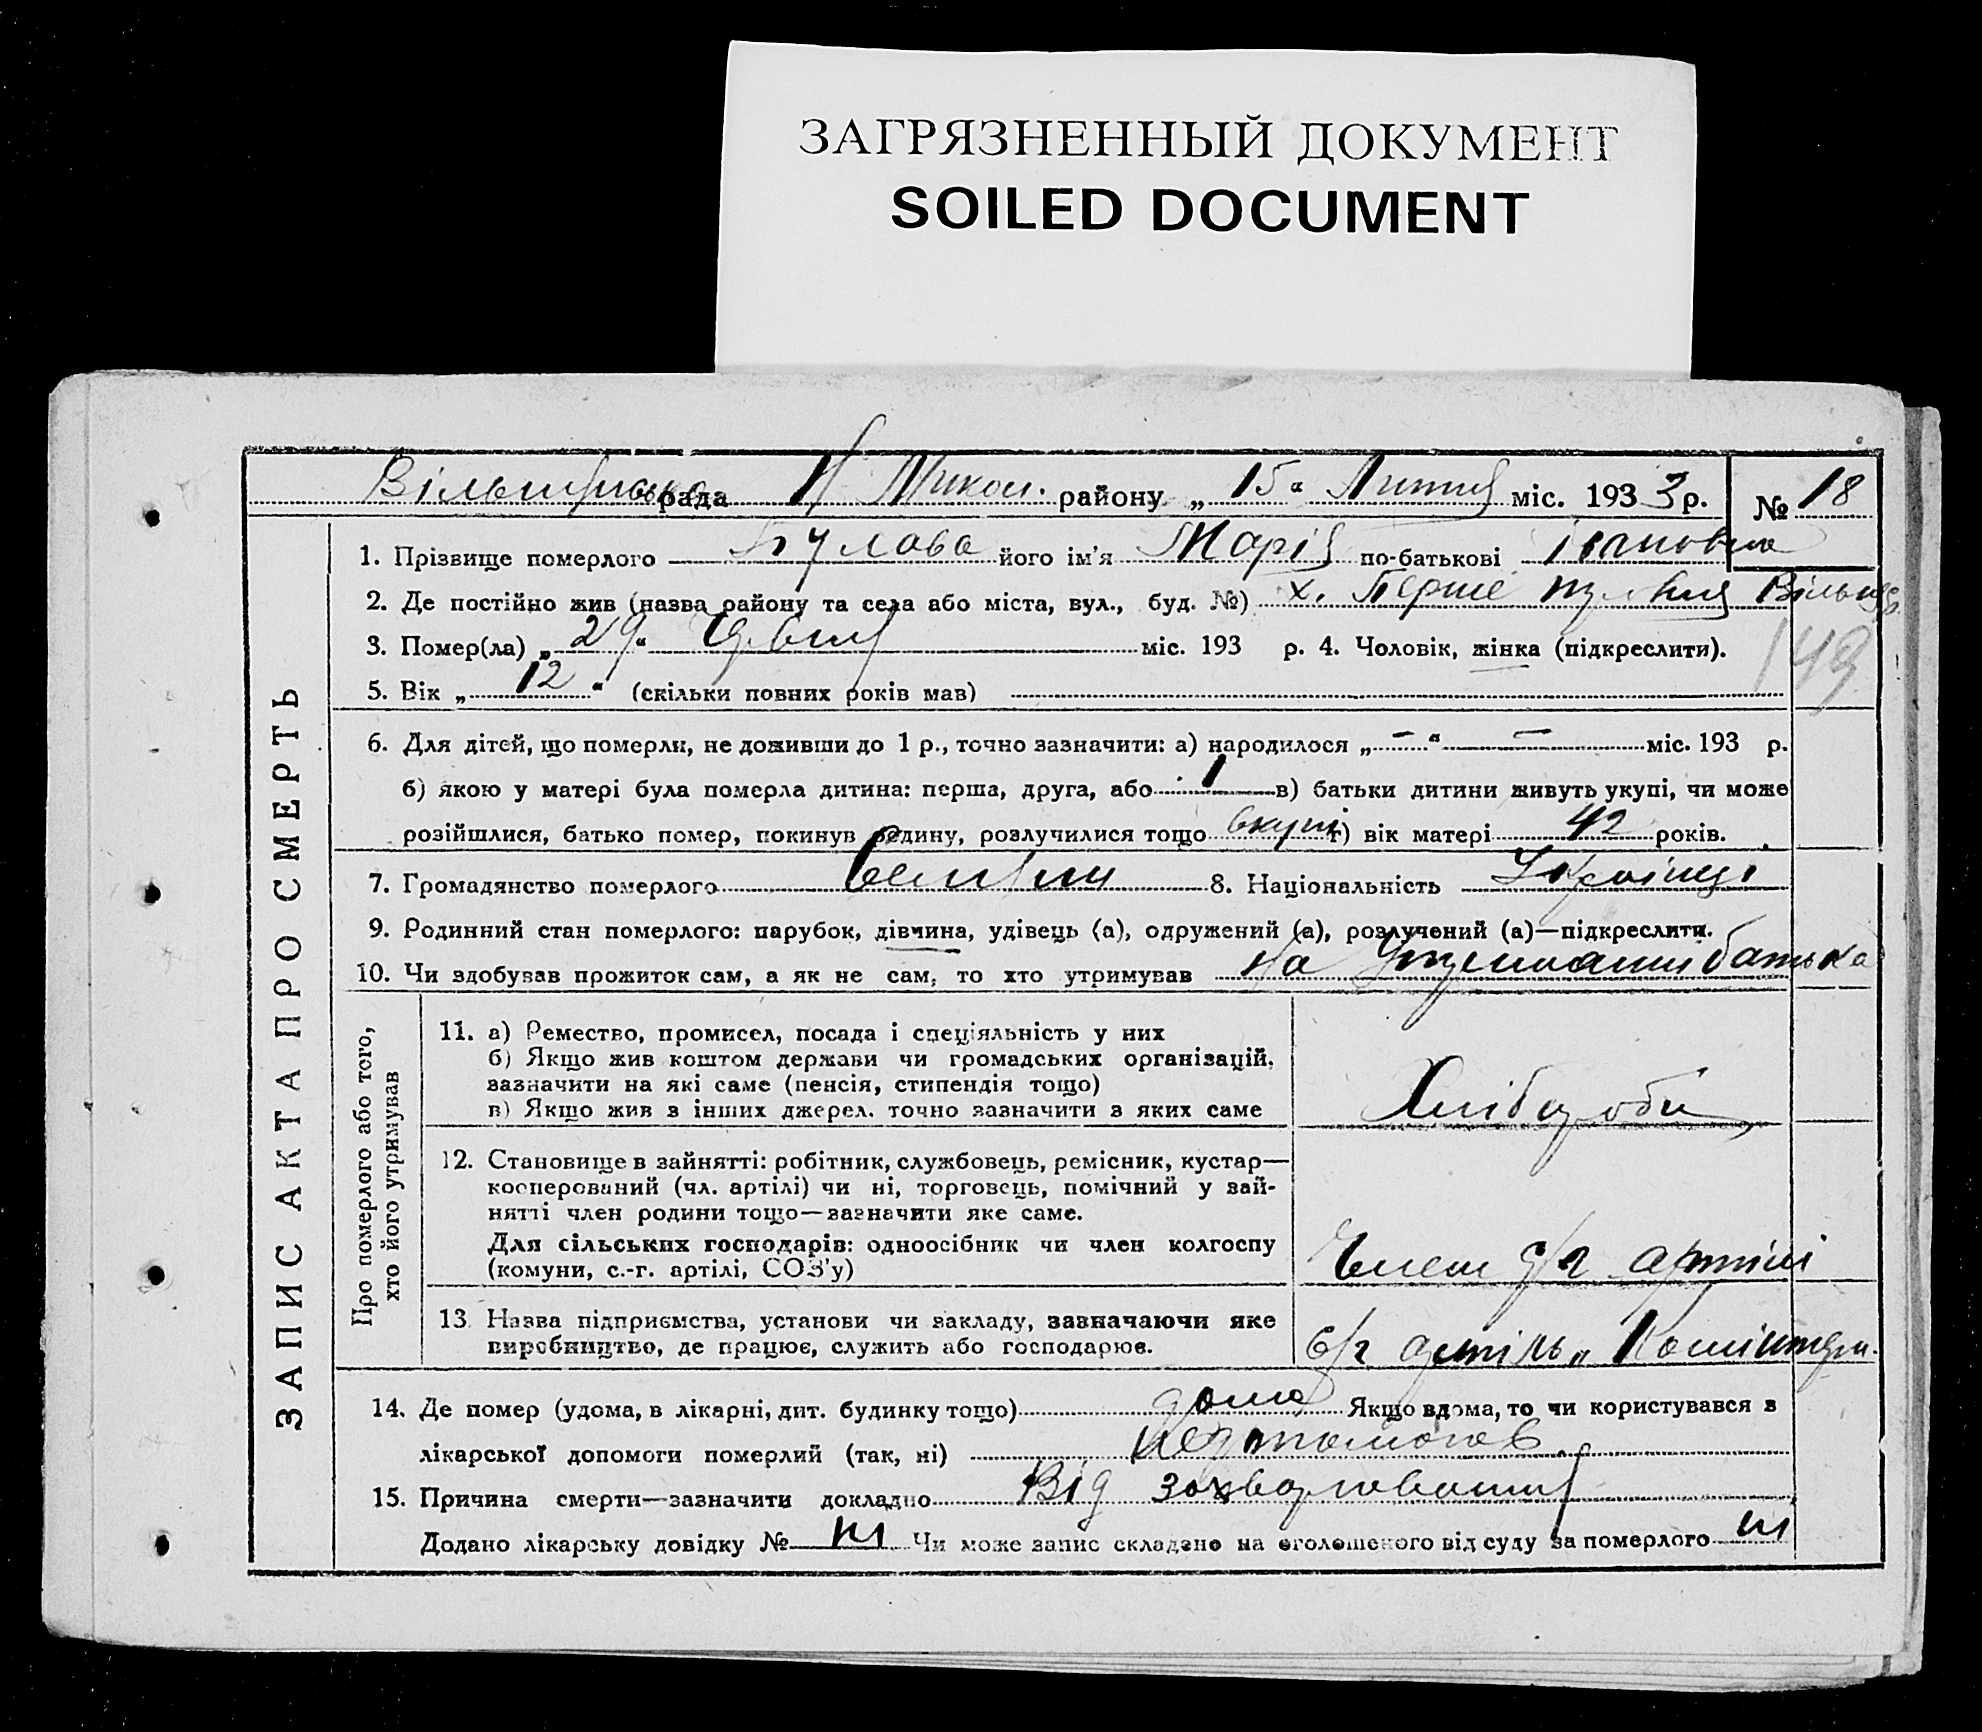 ЗАГРЯЗНЕННЫЙ ДОКУМЕНТ
SOILED DOCUMENT
рада Н Микол. району „ 15 “ міс. 193 3 р. № 18
1. Прізвище померлого Булава його ім'я Марія по-батькові Івановна
2. Де постійно жив (назва району та села або міста, вул., буд. №) х. Перше
3. Помер(ла) „ 29 “ міс. 193 р. 4. Чоловік, жінка (підкреслити).
149
5. Вік „ 12 “ (скільки повних років мав)
6. Для дітей, що померли, не доживши до 1 р., точно зазначити: а) народилося „ – “ – міс. 193 р.
б) якою у матері була померла дитина: перша, друга, або 1 в) батьки дитини живуть укупі, чи може
розійшлися, батько помер, покинув родину, розлучилися тощо вкупі г) вік матері 42 років.
7. Громадянство померлого 8. Національність
9. Родинний стан померлого: парубок, дівчина, удівець (а), одружений (а), розлучений (а)—підкреслити.
10. Чи здобував прожиток сам, а як не сам, то хто утримував на утриманні батька
ЗАПИС АКТА ПРО СМЕРТЬ
Про померлого або того,
хто його утримував
11. а) Ремество, промисел, посада і спеціяльність у них
б) Якщо жив коштом держави чи громадських організацій,
зазначити на які саме (пенсія, стипендія тощо)
в) Якщо жив з інших джерел, точно зазначити з яких саме
Хлібороби
12. Становище в зайнятті: робітник, службовець, ремісник, кустар—
кооперований (чл. артілі) чи ні, торговець, помічний у зай-
нятті член родини тощо—зазначити яке саме.
Для сільських господарів: одноосібник чи член колгоспу
(комуни, с.-г. артілі, СОЗ'у)
Член с/г артілі
13. Назва підприємства, установи чи закладу, зазначаючи яке
виробництво, де працює, служить або господарює.
с/г артіль „Комінтерн.
14. Де помер (удома, в лікарні, дит. будинку тощо) дома Якщо вдома, то чи користувався з
лікарської допомоги померлий (так, ні)
15. Причина смерти—зазначити докладно Від захворювання
Додано лікарську довідку № ні Чи може запис складено на оголошеного від суду за померлого ні